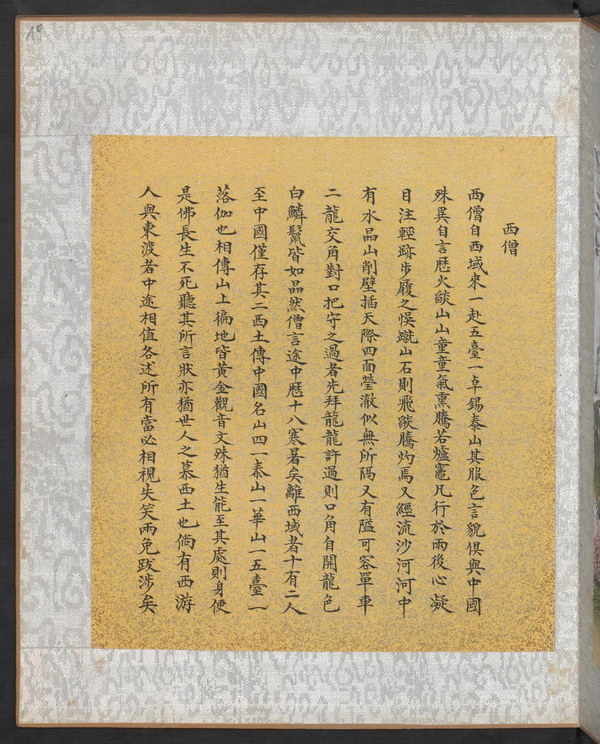 西僧
西僧自西域來一赴五臺一卓錫泰山其服色言貌俱與中國
殊異自言歷火燄山山童童氣熏騰若爐竈凡行於雨後心凝
目注輕跡步履之悞蹴山石則飛燄騰灼焉又經流沙河河中
有水晶山削壁插天際四面瑩澈似無所隔又有隘可容單車
二龍交角對口把守之過者先拜龍龍許過則口角自開龍色
白鱗鬣皆如晶然僧言途中歷十八寒暑矣離西域者十有二人
至中國僅存其二西土傳中國名山四一泰山一華山一五臺一
落伽也相傳山上徧地皆黃金觀音文殊猶生能至其處則身便
是佛長生不死聽其所言狀亦猶世人之慕西土也倘有西游
人與東渡者中途相值各述所有當必相視失笑兩免跋涉矣